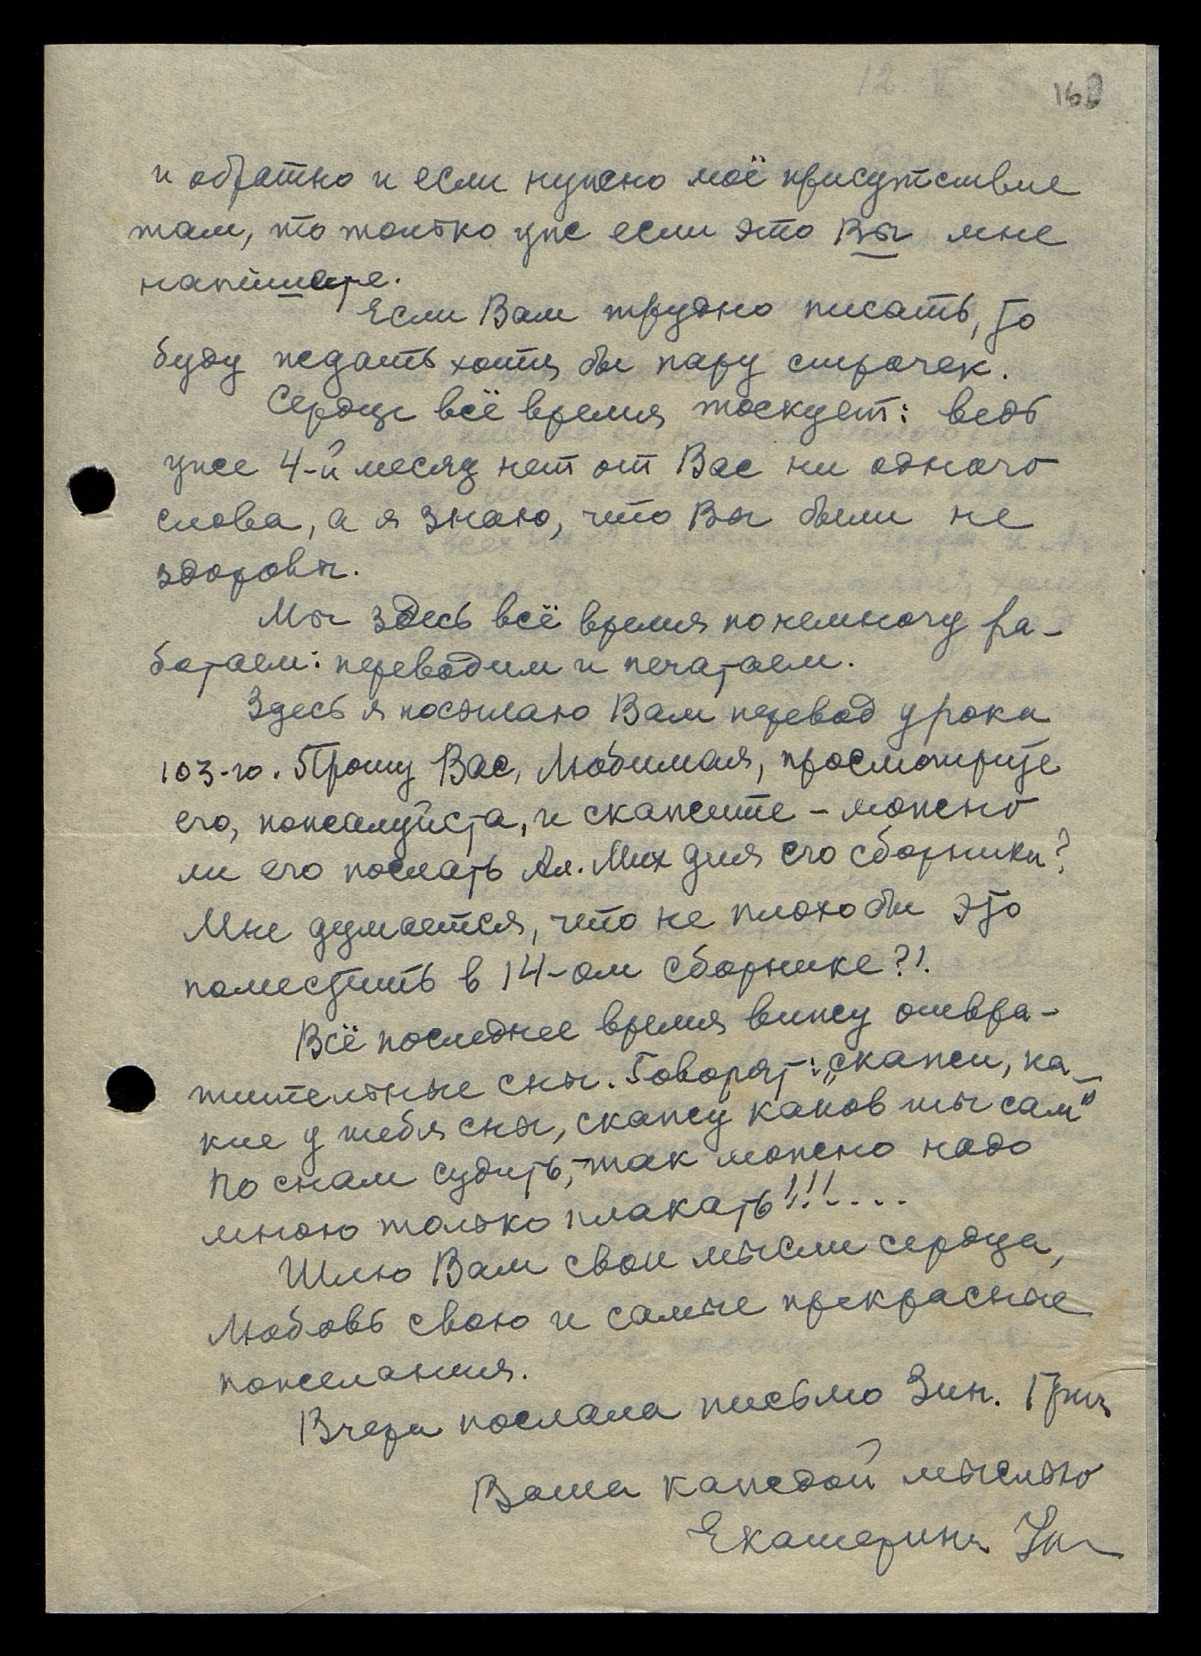 168
и обратно и если нужно моё присутствие
там, то только уже если это Вы мне
напишете.
Если Вам трудно писать, то
буду ждать хотя бы пару строчек.
Сердце всё время тоскует: ведь
уже 4-й месяц нет от Вас ни одного
слова, а я знаю, что Вы были не
здоровы.
Мы здесь всё время понемногу ра-
ботаем: переводим и печатаем.
Здесь я посылаю Вам перевод урока
103-го. Прошу Вас, Любимая, просмотрите
его, пожалуйста, и скажите – можно
ли его послать Ал. Мих для его сборники?
Мне думается, что не плохо бы это
поместить в 14-ом сборнике?!.
Всё последнее время вижу отвра-
тительные сны. Говорят: „скажи, ка-
кие у тебя сны, скажу каков ты сам"
По снам судить, – так можно надо
мною только плакать!!!....
Шлю Вам свои мысли сердца,
Любовь свою и самые прекрасные
пожелания.
Вчера послала письмо Зин. Григ
Ваша каждой мыслью
Екатерина